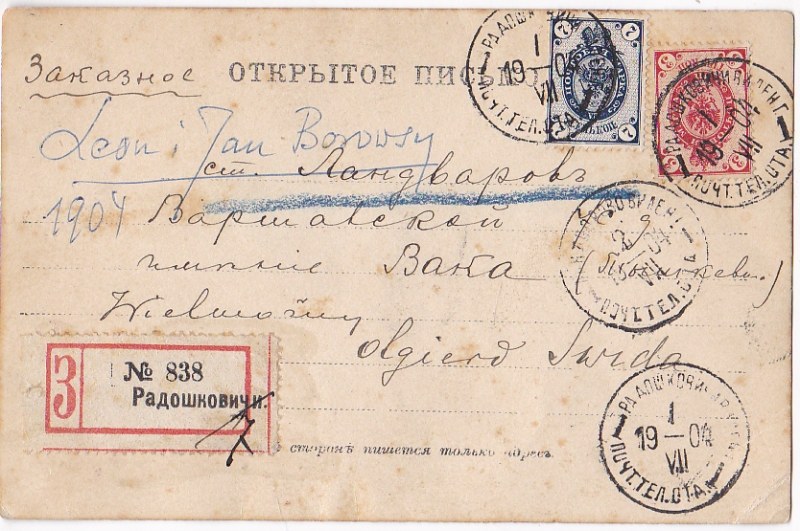 Заказное ОТКРЫТОЕ ПИСЬМО
Leon i Jan Borowsy
ст. Ландваровъ
1904 Варшавской д
имѣніе Вака
Wielmożny
Olgierd Swida
З
№ 838
Радошковичи.
сторонѣ пишется только адресъ.
7
7
3
3
РАДОШКОВИЧИ
1
19—04
VII
ПОЧТ.ТЕЛ.ОТД.
РАДОШКОВИЧИ ВИЛЕНГ
1
19—04
VII
ПОЧТ.ТЕЛ.ОТД.
ВИЛЕНГ
2
04
VII
ПОЧТ.ТЕЛ.ОТД
РАДОШКОВИЧИ
1
19—04
VII
ПОЧТ.ТЕЛ.ОТД.